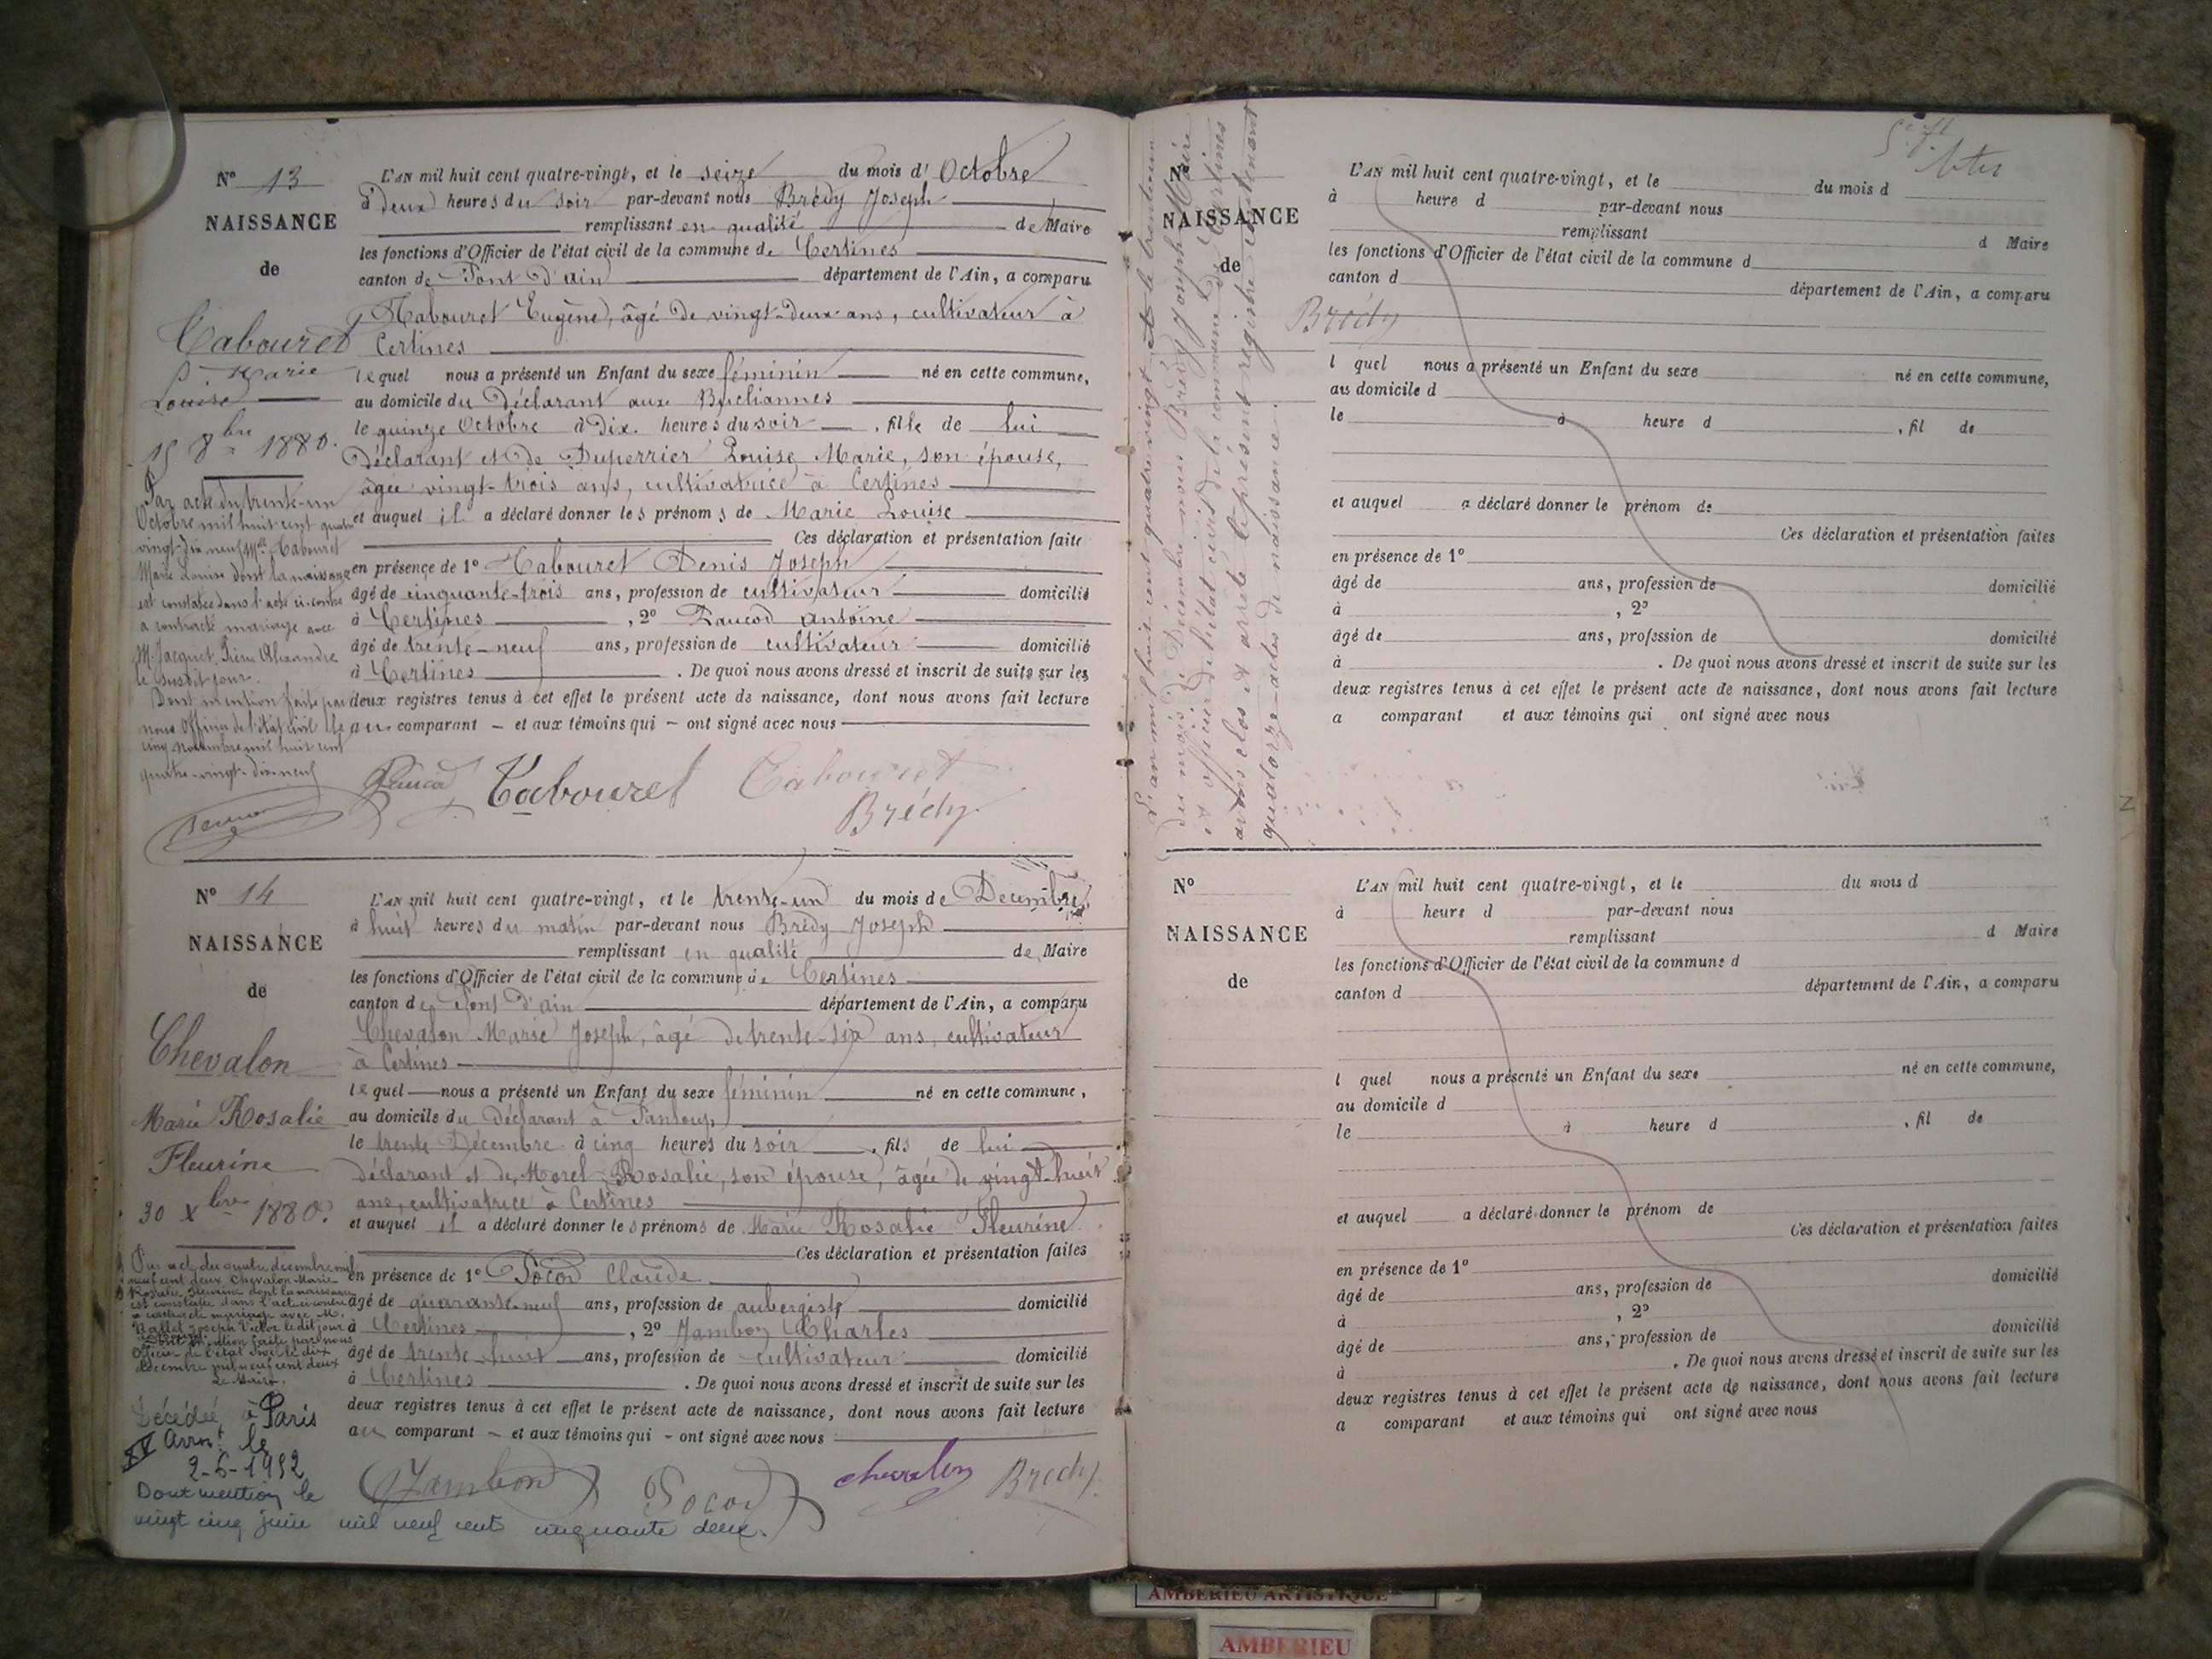 N° 13
NAISSANCE
de
Tabouret
Marie
Louise
15 8bre 1880.
Par acte du trente-un
Octobre mil huit cent quatre
vingt-dix neuf Mlle Tabouret
Marie Louise dont la naissance
est constatée dans l'acte ci-contre
a contracté mariage avec
M. Jacquet, Pierre Alexandre
le susdit jour.
Dont mention faite par
nous Officier de l'état civil le
cinq Novembre mil huit cent
quatre-vingt-dix-neuf
L'AN mil huit cent quatre-vingt, et le seize du mois d'Octobre
à deux heures du soir par-devant nous Brédy Joseph
remplissant en qualité de Maire
les fonctions d'Officier de l'état civil de la commune de Certines
canton de Pont d'ain département de l'Ain, a comparu
Tabouret Eugène, âgé de vingt-deux ans, cultivateur à
Certines
lequel nous a présenté un Enfant du sexe féminin né en cette commune,
au domicile du Déclarant aux
le quinze Octobre à Dix heures du soir, fille de lui
Déclarant et de Duperrier Louise Marie, son épouse,
âgée vingt-trois ans, cultivatrice à Certines
et auquel il a déclaré donner les prénoms de Marie Louise
Ces déclaration et présentation faite
en présence de 1° Tabouret Denis Joseph
âgé de cinquante-trois ans, profession de cultivateur domicilié
à Certines, 2° Paucod Antoine
âgé de trente-neuf ans, profession de cultivateur domicilié
à Certines. De quoi nous avons dressé et inscrit de suite sur les
deux registres tenus à cet effet le présent acte de naissance, dont nous avons fait lecture
au comparant - et aux témoins qui - ont signé avec nous
Paucod Tabouret Tabouret
Brédy
N° 14
NAISSANCE
de
Chevalon
Marie Rosalie
Fleurine
30 Xbre 1880.
Par acte du quatre décembre mil
neuf cent deux Chevalon Marie
Rosalie Fleurine dont la naissance
est constatée dans l'acte ci-contre
a contracté mariage avec M.
Joseph Victor ledit jour
Dont mention faite par nous
Officier de l'état civil le dix
décembre mil neuf cent deux
Le Maire.
Décédée à Paris
XV Arrnt le
2-6-1952
Dont mention le
vingt cinq juin mil neuf cent cinquante deux.
L'AN mil huit cent quatre-vingt, et le trente-un du mois de Décembre
à huit heures du matin par-devant nous Brédy Joseph
remplissant en qualité de Maire
les fonctions d'Officier de l'état civil de la commune de Certines
canton de Pont d'ain département de l'Ain, a comparu
Chevalon Marie Joseph, âgé de trente-six ans, cultivateur
à Certines
lequel nous a présenté un Enfant du sexe féminin né en cette commune,
au domicile du Déclarant à
le trente Décembre à cinq heures du soir, fils de lui
déclarant et de Morel Rosalie, son épouse, âgée de vingt-huit
ans, cultivatrice à Certines
et auquel il a déclaré donner les prénoms de Marie Rosalie Fleurine
Ces déclaration et présentation faites
en présence de 1° Pocod Claude
âgé de quarante-neuf ans, profession de aubergiste domicilié
à Certines, 2° Jambon Charles
âgé de trente-huit ans, profession de cultivateur domicilié
à Certines. De quoi nous avons dressé et inscrit de suite sur les
deux registres tenus à cet effet le présent acte de naissance, dont nous avons fait lecture
au comparant - et aux témoins qui - ont signé avec nous
Jambon Pocod chevalon Brédy
L'an mil huit cent quatre vingt et le trente un
du mois de Décembre nous Brédy Joseph Maire
et officier de l'état civil de la commune de Certines
avons clos et arrêté le présent registre contenant
quatorze actes de naissance.
Brédy
N°
NAISSANCE
de
L'AN mil huit cent quatre-vingt, et le du mois d
à heure d par-devant nous
remplissant d Maire
les fonctions d'Officier de l'état civil de la commune d
canton d département de l'Ain, a comparu
l quel nous a présenté un Enfant du sexe né en cette commune,
au domicile d
le à heure d , fil de
et auquel a déclaré donner le prénom de
Ces déclaration et présentation faites
en présence de 1°
âgé de ans, profession de domicilié
à , 2°
âgé de ans, profession de domicilié
à . De quoi nous avons dressé et inscrit de suite sur les
deux registres tenus à cet effet le présent acte de naissance, dont nous avons fait lecture
a comparant et aux témoins qui ont signé avec nous
N°
NAISSANCE
de
L'AN mil huit cent quatre-vingt, et le du mois d
à heure d par-devant nous
remplissant d Maire
les fonctions d'Officier de l'état civil de la commune d
canton d département de l'Ain, a comparu
l quel nous a présenté un Enfant du sexe né en cette commune,
au domicile d
le à heure d , fil de
et auquel a déclaré donner le prénom de
Ces déclaration et présentation faites
en présence de 1°
âgé de ans, profession de domicilié
à , 2°
âgé de ans, profession de domicilié
à . De quoi nous avons dressé et inscrit de suite sur les
deux registres tenus à cet effet le présent acte de naissance, dont nous avons fait lecture
a comparant et aux témoins qui ont signé avec nous
AMBERIEU ARTISTIQUE
AMBERIEU